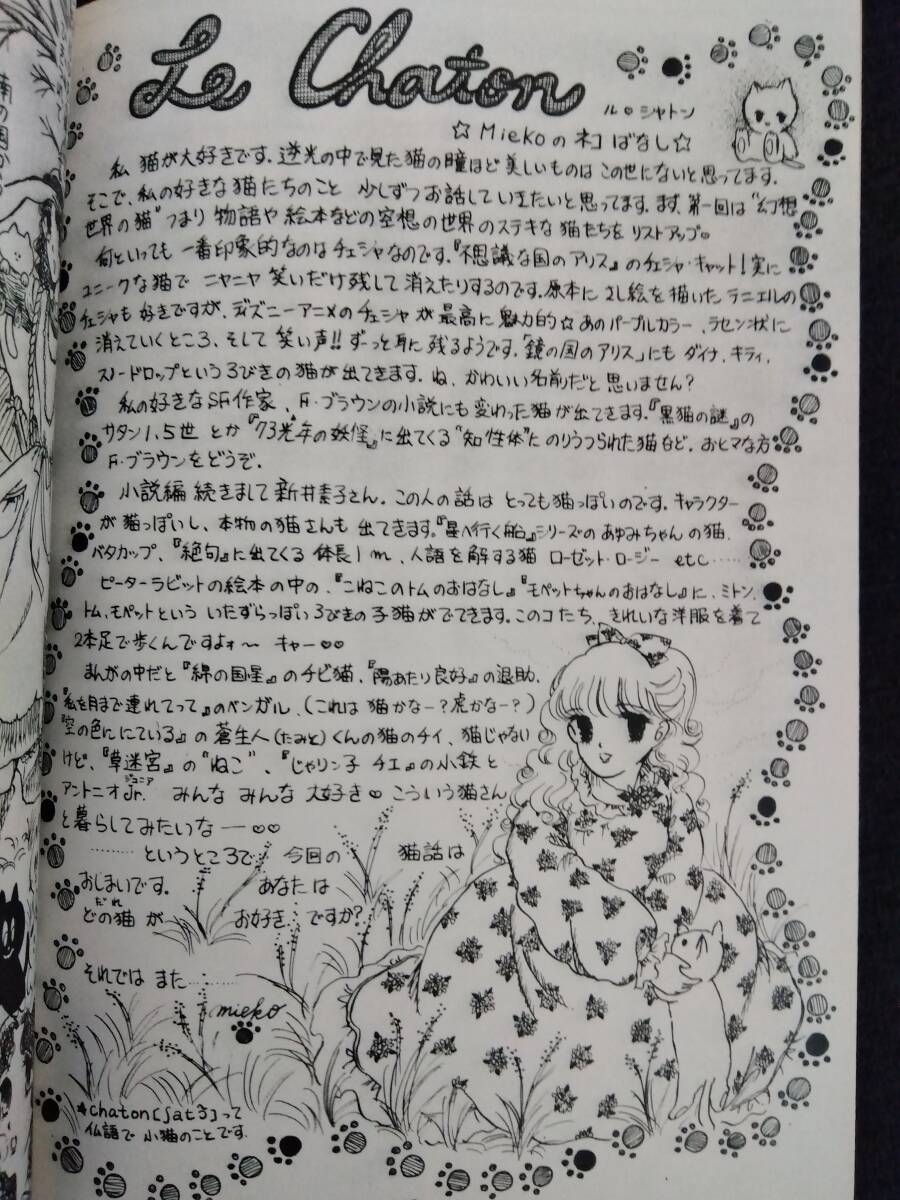 Le Chaton
ル・シャトン
☆Miekoのネコばなし☆
私 猫が大好きです。逆光の中で見た猫の瞳ほど美しいものはこの世にないと思ってます。
そこで、私の好きな猫たちのこと 少しずつお話していきたいと思ってます。まず、第一回は"幻想
世界の猫"つまり 物語や絵本などの空想の世界のステキな猫たちをリストアップ。
何といっても 一番印象的なのはチェシャなのです。『不思議な国のアリス』のチェシャ・キャット!実に
ユニークな猫で ニヤニヤ笑いだけ残して消えたりするのです。原本にさし絵を描いたテニエルの
チェシャも好きですが、ディズニーアニメのチェシャが最高に魅力的☆あのパープルカラー、ラセン状に
消えていくところ、そして笑い声!!ずーっと耳に残るようです。「鏡の国のアリス」にも ダイナ、キティ、
スノードロップという3びきの猫が出てきます。ね、かわいい名前だと思いません?
私の好きなSF作家、F・ブラウンの小説にも変わった猫が出てきます。『黒猫の謎』の
サタン1.5世 とか『73光年の妖怪』に出てくる"知性体"にのりうつられた猫など。おヒマな方
F・ブラウンをどうぞ。
小説編 続きまして 新井素子さん。この人の話は とっても猫っぽいのです。キャラクター
が猫っぽいし、本物の猫さんも出てきます。『星へ行く船』シリーズのあゆみちゃんの猫、
バタカップ、『絶句』に出てくる 体長1m、人語を解する猫 ローゼット・ロージー etc……
ピーターラビットの絵本の中の、『こねこのトムのおはなし』『モペットちゃんのおはなし』に、ミトン、
トム、モペットという いたずらっぽい3びきの子猫がでてきます。このコたち、きれいな洋服を着て
2本足で歩くんですよォ〜 キャー♡♡
まんがの中だと『綿の国星』のチビ猫、『陽あたり良好』の退助、
『私を月まで連れてって』のベンガル、(これは 猫かなー?虎かなー?)
『空の色ににている』の 蒼生人(たみと)くんの猫のチイ、猫じゃない
けど、『草迷宮』の"ねこ"、『じゃリン子 チエ』の小鉄と
アントニオJr.ジュニア みんな みんな 大好き♡ こういう猫さん
と暮らしてみたいなー♡♡
………というところで 今回の 猫話は
おしまいです。 あなたは
どの猫が お好き ですか?
だれ
それでは また………
mieko
*chaton[ʃatɔ̃]って
仏語で 小猫のことです。
南の国か